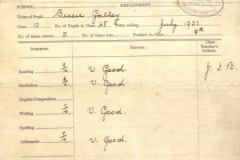 DEPARTMENT
Name of Pupil Bessie Galley
Class 10 No. of Pupils in Class 48 Term ending July 1933.
No. of times absent 2 No. of times late Position in Class 9th
SUBJECTS. REPORT. Class Teacher's Initials.
Reading V. Good J. S B.
Recitation V. Good
English Composition
Writing V. Good
Spelling
Arithmetic V. Good.